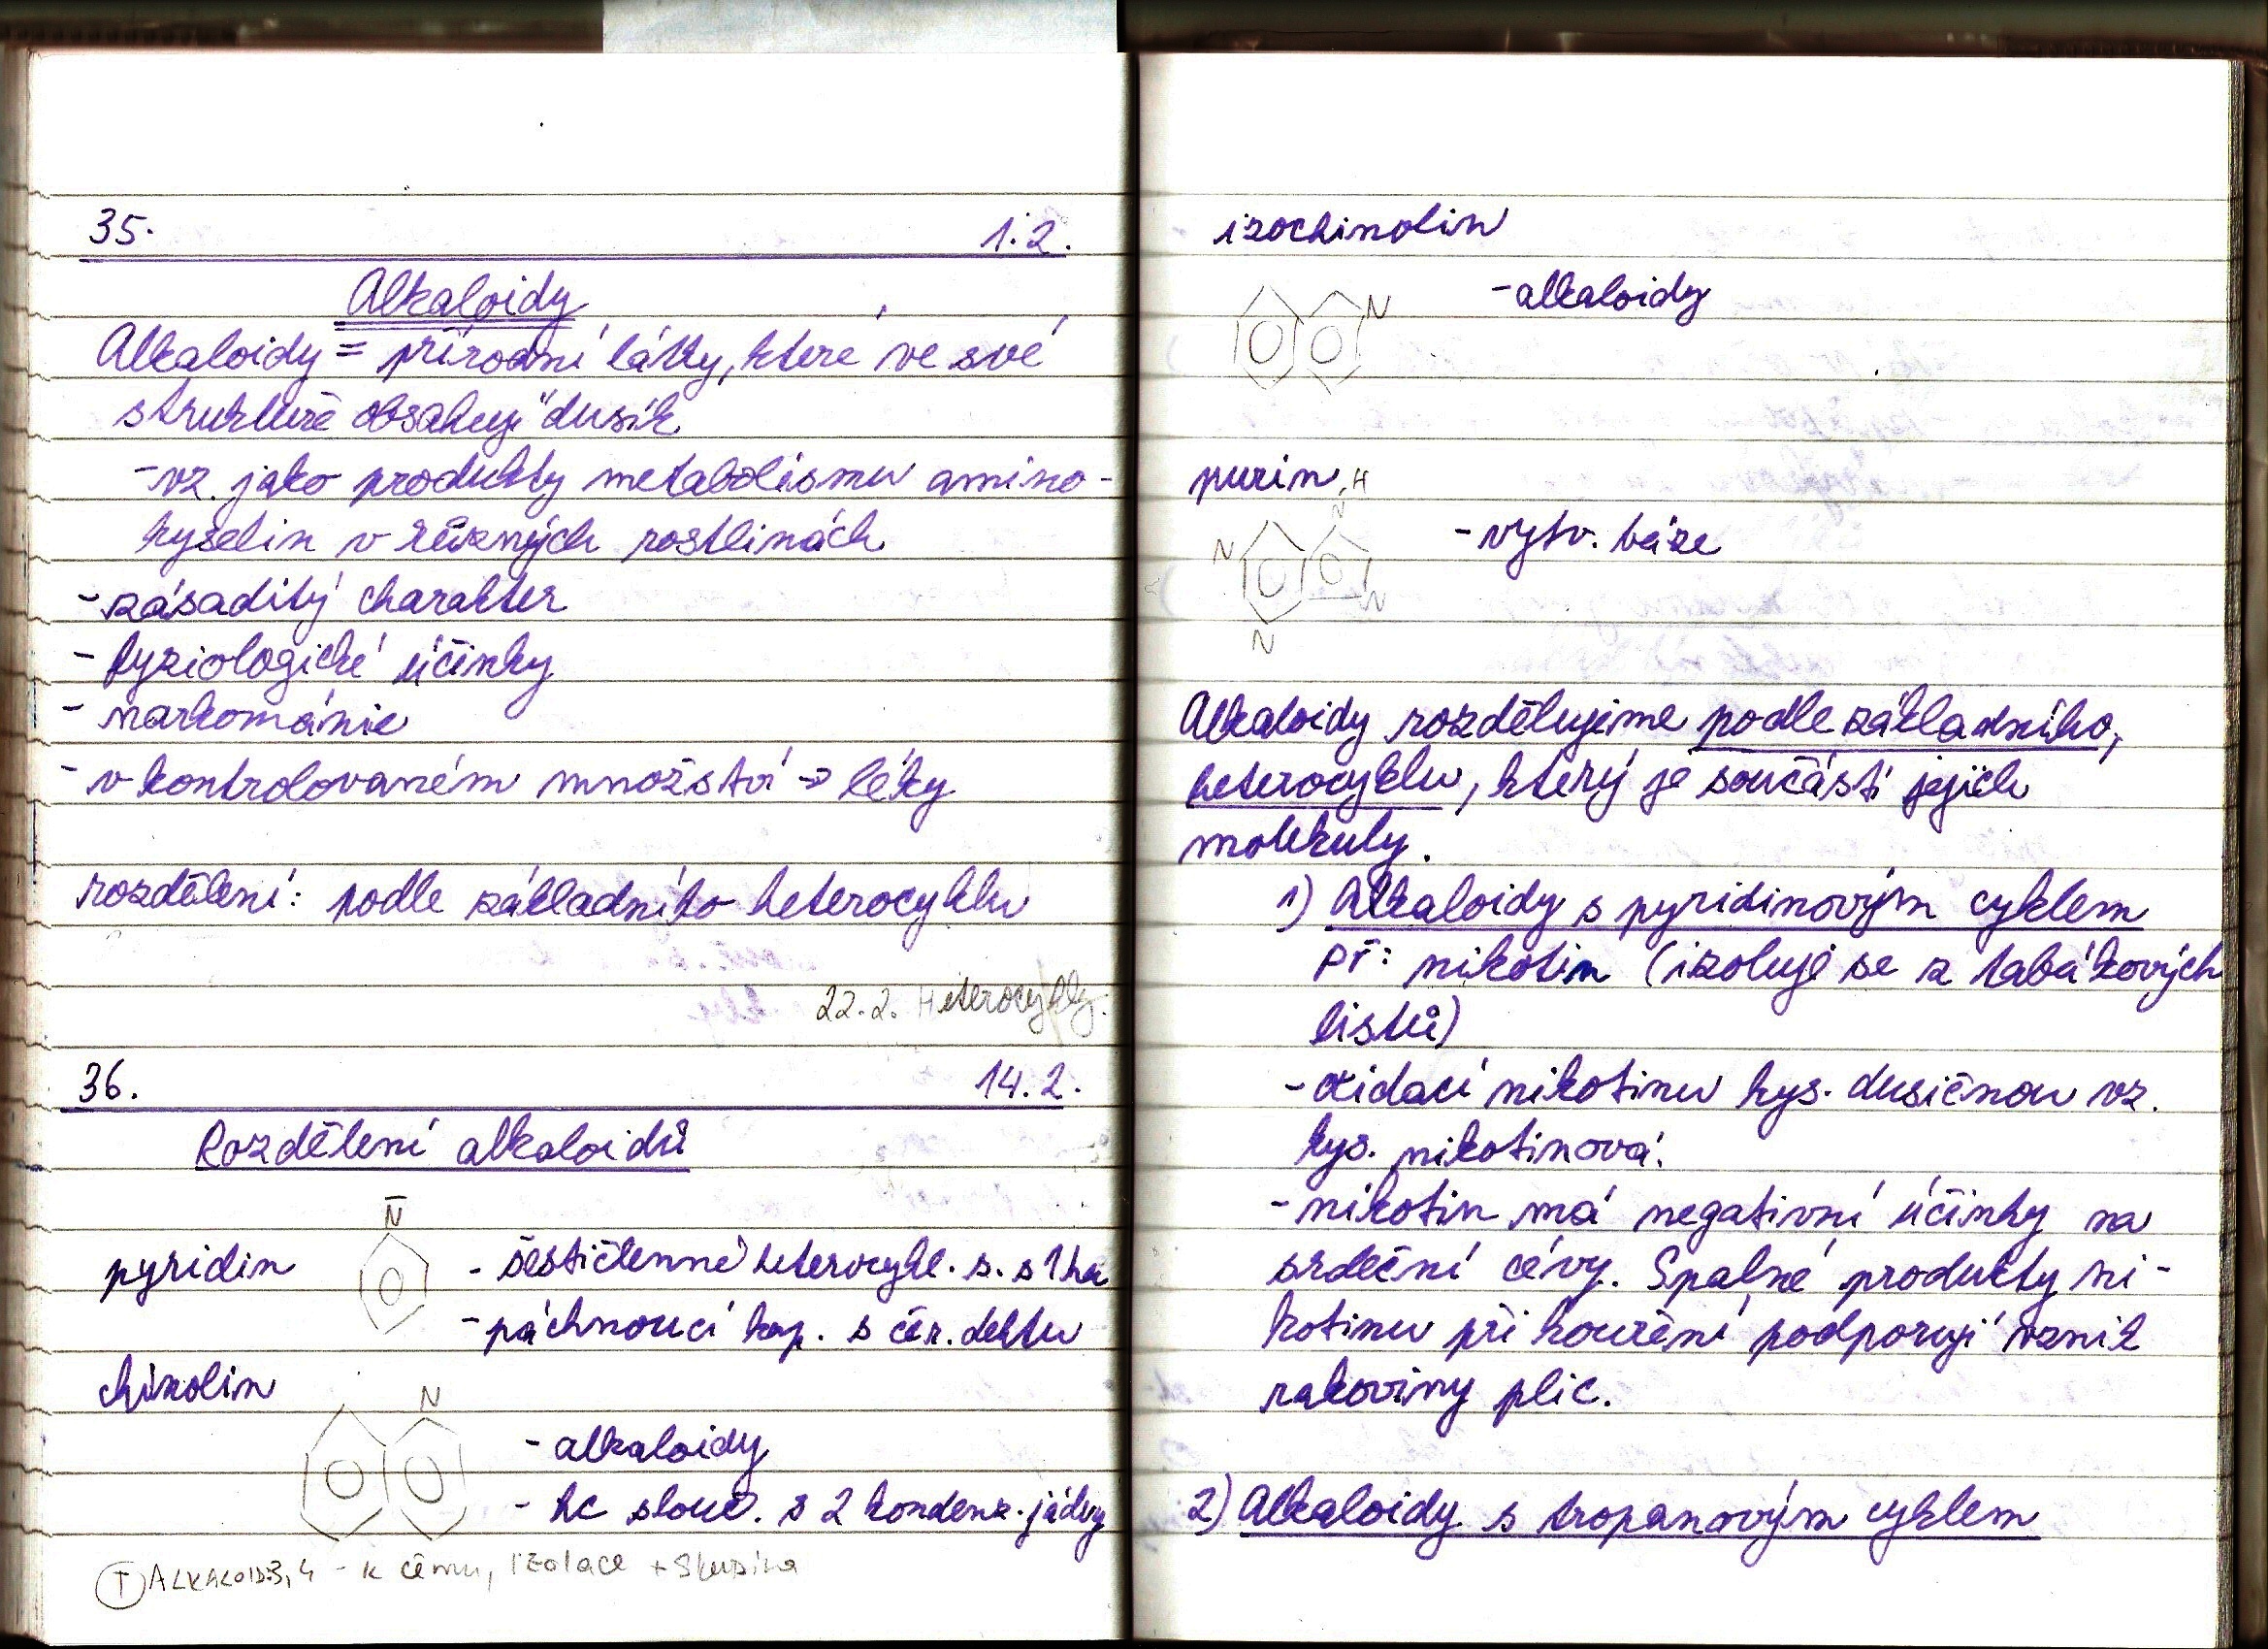 35. 1.2.
Alkaloidy
Alkaloidy = přírodní látky, které ve své
struktuře obsahují dusík
- vz. jako produkty metabolismu amino-
kyselin v různých rostlinách
- zásaditý charakter
- fyziologické účinky
- narkománie
- v kontrolovaném množství => léky
rozdělení: podle základního heterocyklu
22.2. Heterocykly.
36. 14.2.
Rozdělení alkaloidů
N
pyridin - šestičlenné heterocykl. s. s 1 ha
- páchnoucí kap. s čer. dehtu
chinolin
N
- alkaloidy
- hc slouč. s 2 kondenz. jádry
T ALKALOIDY 3,4 - k čemu, izolace + skupina
izochinolin
N - alkaloidy
purin
H
N
N - vytv. báze
N
N
Alkaloidy rozdělujeme podle základního,
heterocyklu, který je součástí jejich
molekuly.
1) Alkaloidy s pyridinovým cyklem
př: nikotin (izoluje se z tabákových
listů)
- oxidací nikotinu kys. dusičnou vz.
kys. nikotinová.
- nikotin má negativní účinky na
srdeční cévy. Spalné produkty ni-
kotinu při kouření podporují vznik
rakoviny plic.
2) Alkaloidy s tropanovým cyklem